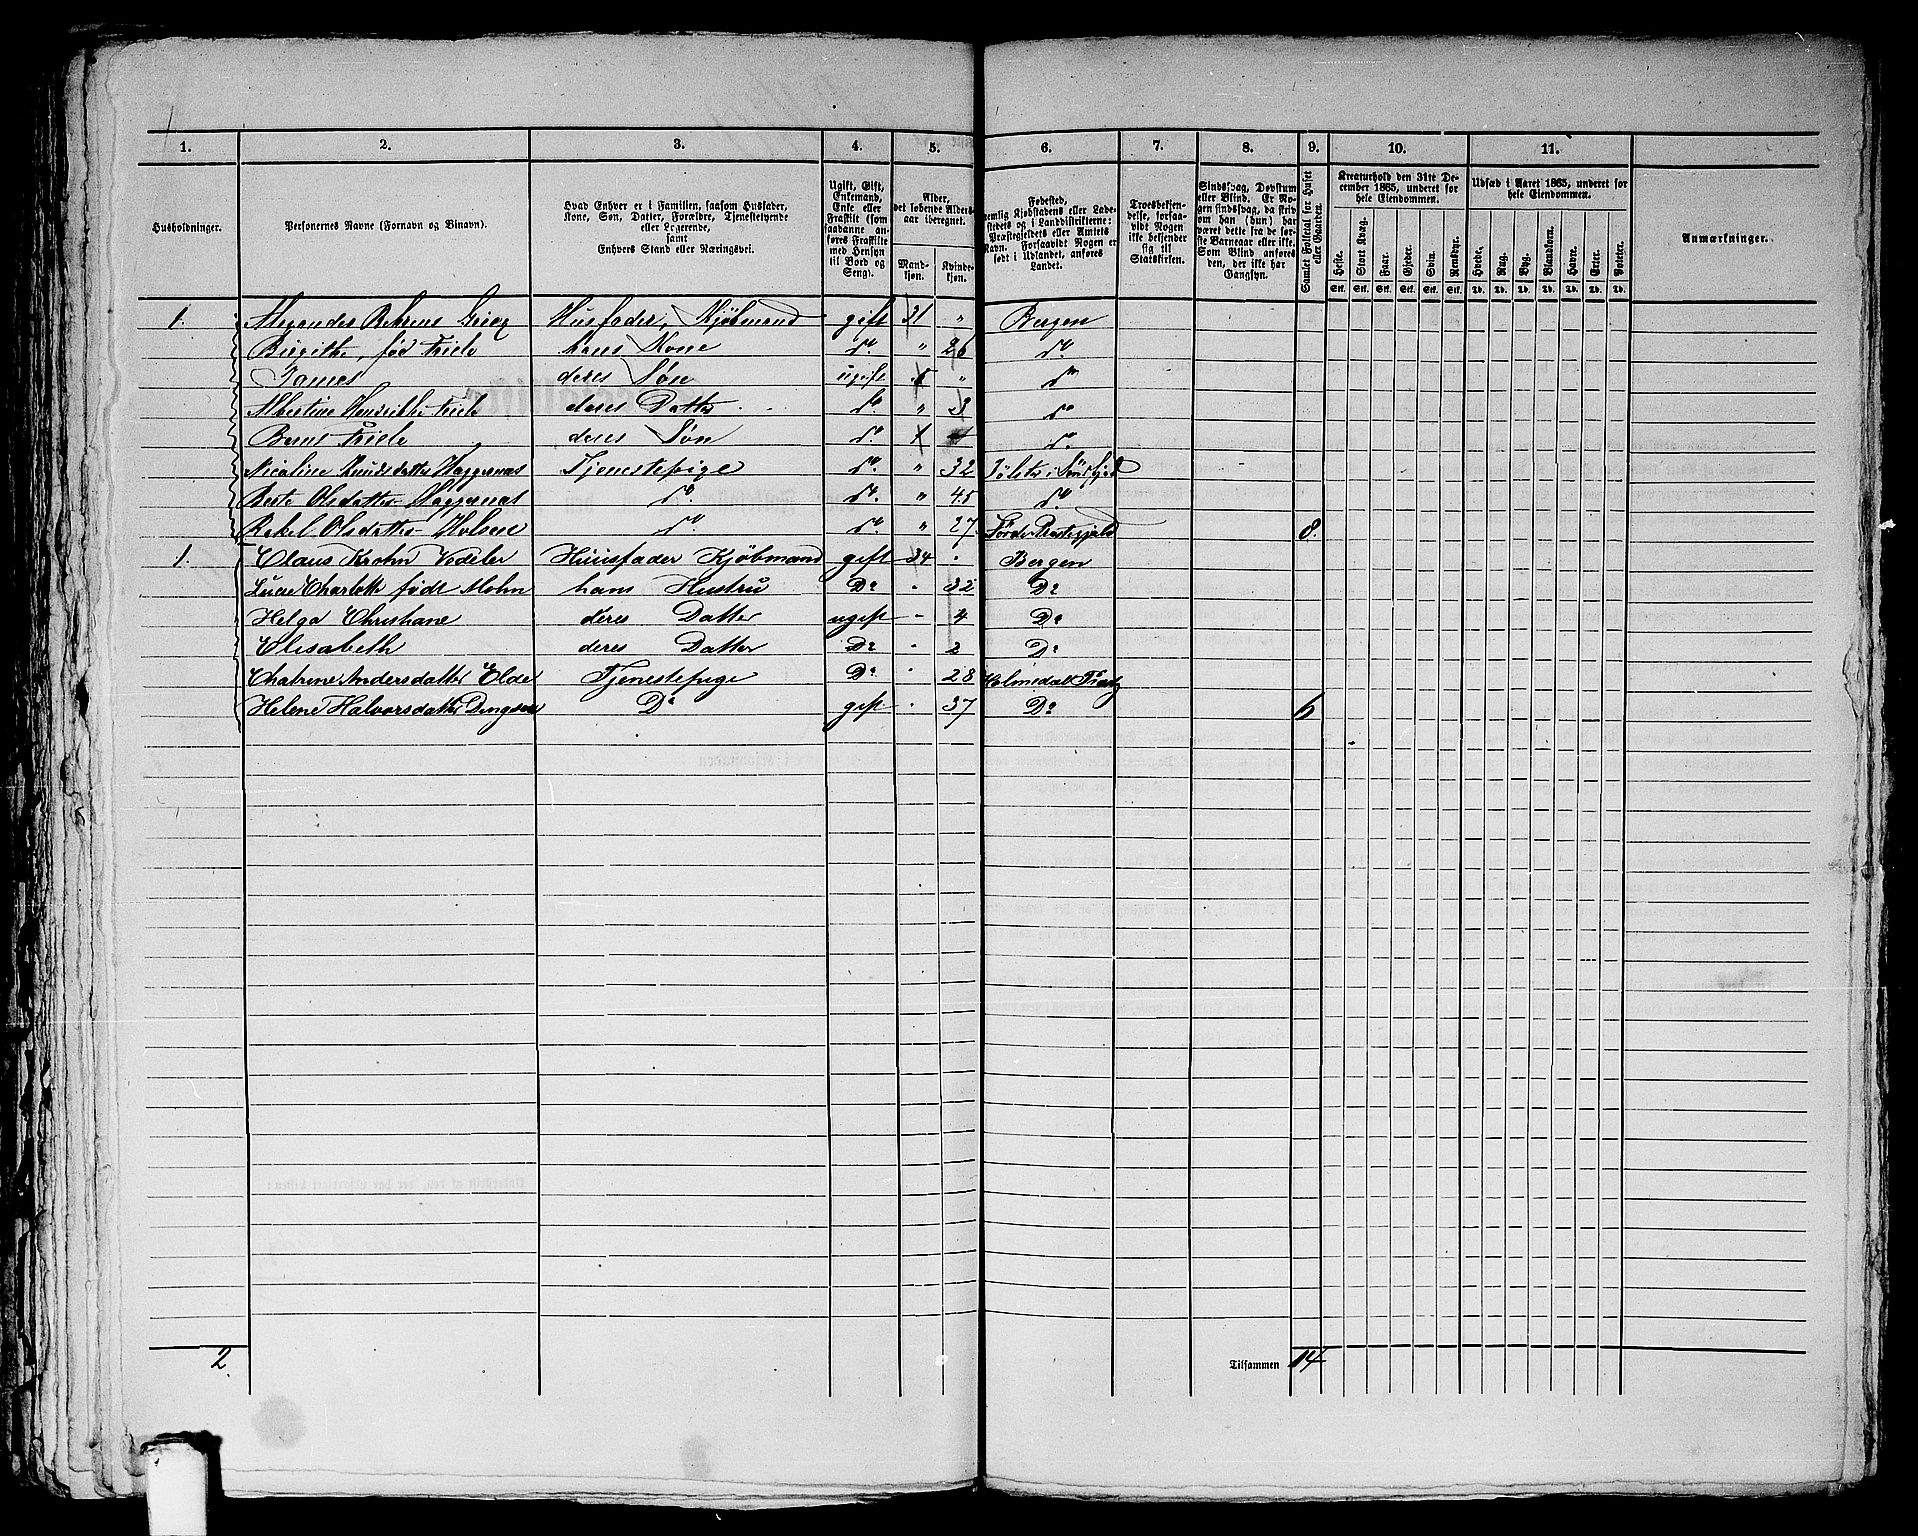 1. 2. 3. 4. 5. 6. 7. 8. 9. 10. 11.
Husholdninger. Personernes Navne (Fornavn og Binavn). Hvad Enhver er i Familien, saasom Husfader, Kone, Søn, Datter, Forældre, Tjenestetyende eller Logerende, samt Enhvers Stand eller Næringsvei. Ugift, Gift, Enkemand, Enke eller Fraskilt (som saadanne anføres Fraskilte med Hensyn til Bord og Seng). Alder, det løbende Alders-aar iberegnet. Mandkjøn. Kvindekjøn. Fødested, nemlig Kjøbstadens eller Ladestedets og i Landdistrikterne: Præstegjeldets eller Amtets Navn. Forsaavidt Nogen er født i Udlandet, anføres Landet. Troesbekjendelse, forsaavidt Nogen ikke bekjender sig til Statskirken. Sindssvag, Døvstum eller Blind. Er Nogen sindssvag, da skrives, om han (hun) har været dette fra de første Barneaar eller ikke. Som Blind anføres den, der ikke har Gangsyn. Samlet Folketal for Huset eller Gaarden. Kreaturhold den 31te December 1865, underet for hele Eiendommen. Udsæd i Aaret 1865, underet for hele Eiendommen. Anmærkninger.
Heste. Stort Kvæg. Faar. Gjeder. Svin. Rensdyr. Hvede. Rug. Byg. Blandkorn. Havre. Erter. Poteter.
Stk. Stk. Stk. Stk. Stk. Stk. Td. Td. Td. Td. Td. Td. Td.
1. Alexander Behrens Grieg Husfader, Kjøbmand gift 31 " Bergen
Birgithe, fød Friele hans Kone do. " 26 do.
James deres Søn ugift "  do
Albertine Hendrikke Friele deres Datter do " 3 do
Berns Friele deres Søn do. 1 do.
Nicoline Knudsdatter Haggenæs Tjenestepige do. " 32 Jølster i Søndfjord
Berte Olsdatter Haggenæs do. do. " 45 do.
Rakel Olsdatter Holsene do. do. " 27 Førde Præstegjæld 8.
1. Claus Krohn Vedeler Huusfader Kjøbmand gift 34 . Bergen
Lucie Charlotte født Mohn hans Hustru Do - 32 Do
Helga Christiane deres Datter ugift - 4 Do
Elisabeth deres Datter Do - 2 Do
Chatrine Andersdatter Elde Tjenestepige Do - 28 Holmedal Præstg
Helene Halvorsdatter Do gift . 37 Do 6
2. Tilsammen 14